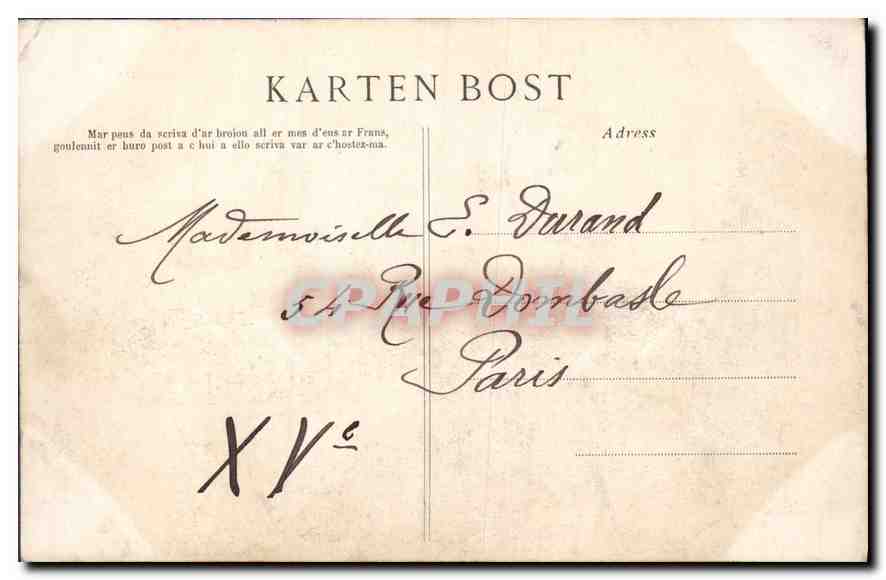 KARTEN BOST
Mar peus da scriva d'ar broiou all er mes d'eus ar Frans,
goulennit er buro post a c hui a ello scriva var ar c'hostez-ma.
Adress
Mademoiselle E. Durand
54 Rue Dombasle
Paris
XVe
CPAPHIL